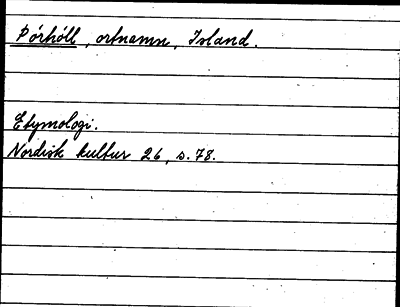 Þórhóll, ortnamn, Island.
Etymologi.
Nordisk kultur 26, s. 78.